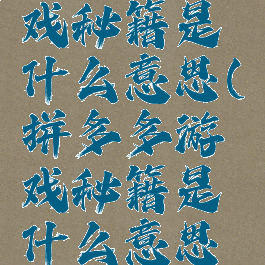 戏秘籍是
什么意思(
拼多多游
戏秘籍是
什么意思